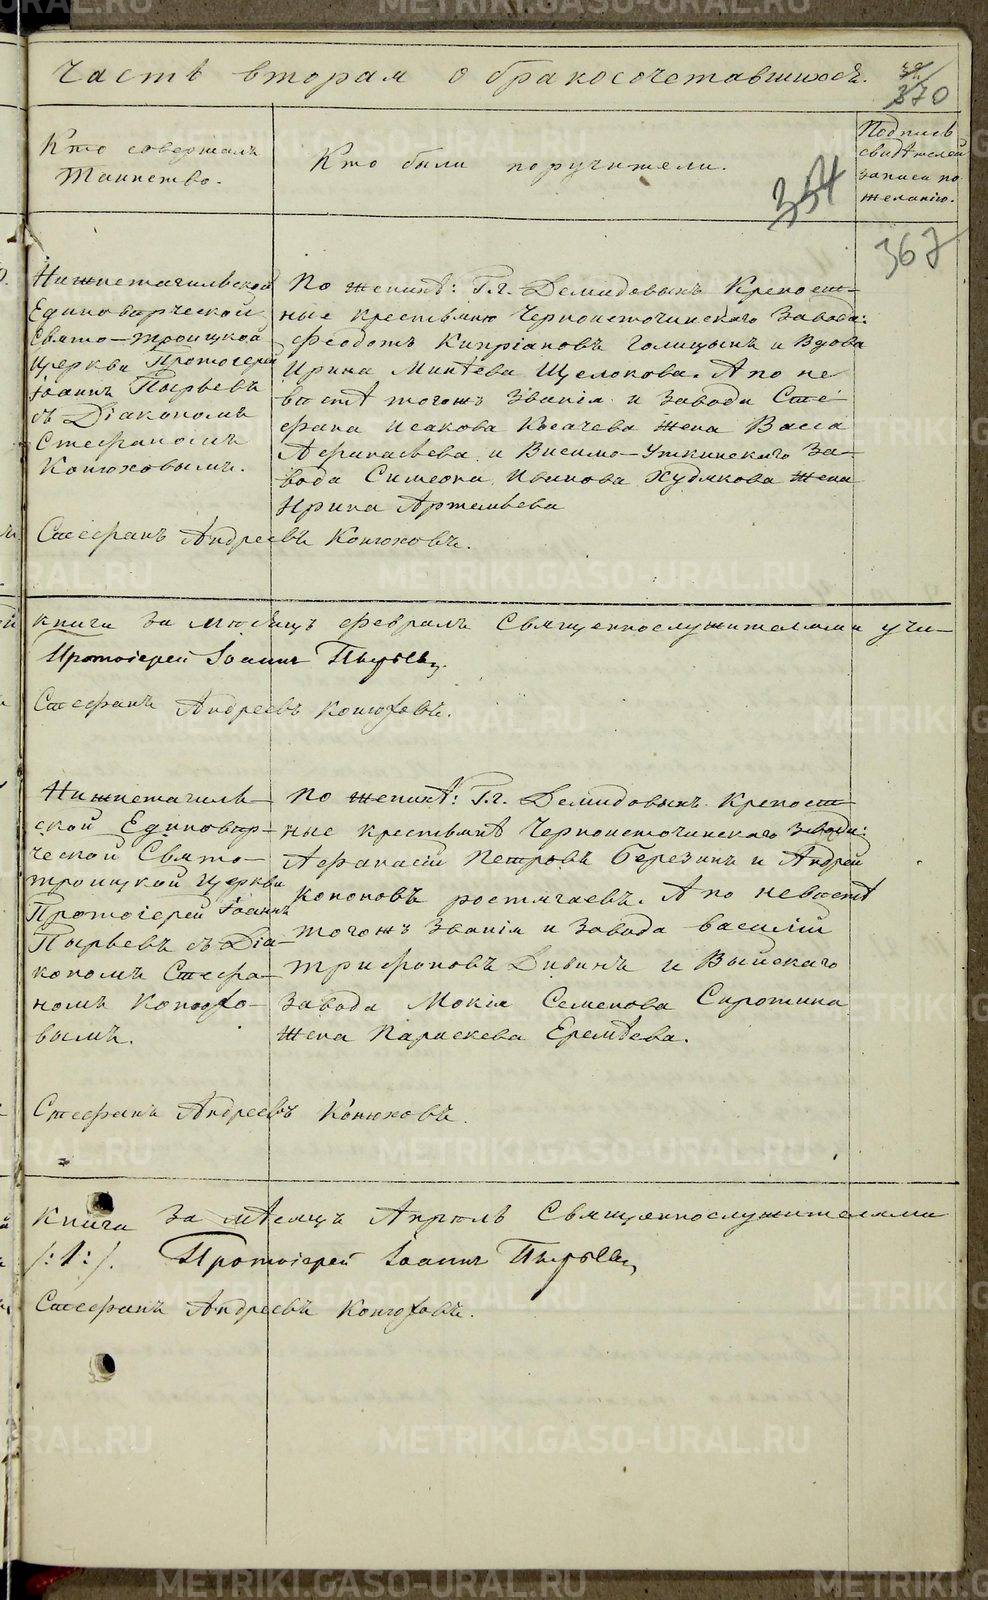 Часть вторая о бракосочетавшихся.
370
Кто совершалъ
Таинство.
Кто были поручители.
Подпись
свидѣтелей
записи по
желанію.
354
367
Нижнетагильской
Единоверческой
Свято-троицкой
Церкви Протоіерей
Іоаннъ Пырьевъ
съ Діакономъ
Стефаномъ
Конюховымъ.
По женихѣ: Г.г. Демидовыхъ Крепост-
ные крестьяно Черноисточинскаго Завода:
Феодотъ Кипріановъ Голицынъ и Вдова
Ирина Минѣева Щелокова. А по не
вѣстѣ тогожъ Званія и Завода Сте-
фана Исакова Косачева Жена Васса
Афанасьева и Висимо-Уткинскаго За-
вода Симеона Иванова Худякова Жена
Ирина Артемьева
Стефанъ Андреевъ Конюховъ.
книги За мѣсяцъ февраль Священнослужителями учи-
Протоіерей Іоаннъ Пырьевъ
Стефанъ Андреевъ Конюховъ.
Нижнетагиль-
ской Единовер-
ческой Свято-
троицкой Церкви
Протоіерей Іоаннъ
Пырьевъ съ Діа-
кономъ Стефа-
номъ Конюхо-
вымъ.
По женихѣ: Г.г. Демидовыхъ Крепост-
ные крестьянѣ Черноисточинскаго Завода:
Афанасій Петровъ Березинъ и Андрей
кононовъ ростягаевъ. А по невѣстѣ
тогожъ Званія и Завода василій
трифоновъ Дивинъ и Выйскаго
Завода Мокія Семенова Сиротина
Жена Параскева Еремѣева.
Стефанъ Андреевъ Конюховъ.
Книги За мѣсяцъ Апрель Священнослужителями
/:1:/. Протоіерей Іоаннъ Пырьевъ
Стефанъ Андреевъ Конюховъ.
METRIKI.GASO-URAL.RU